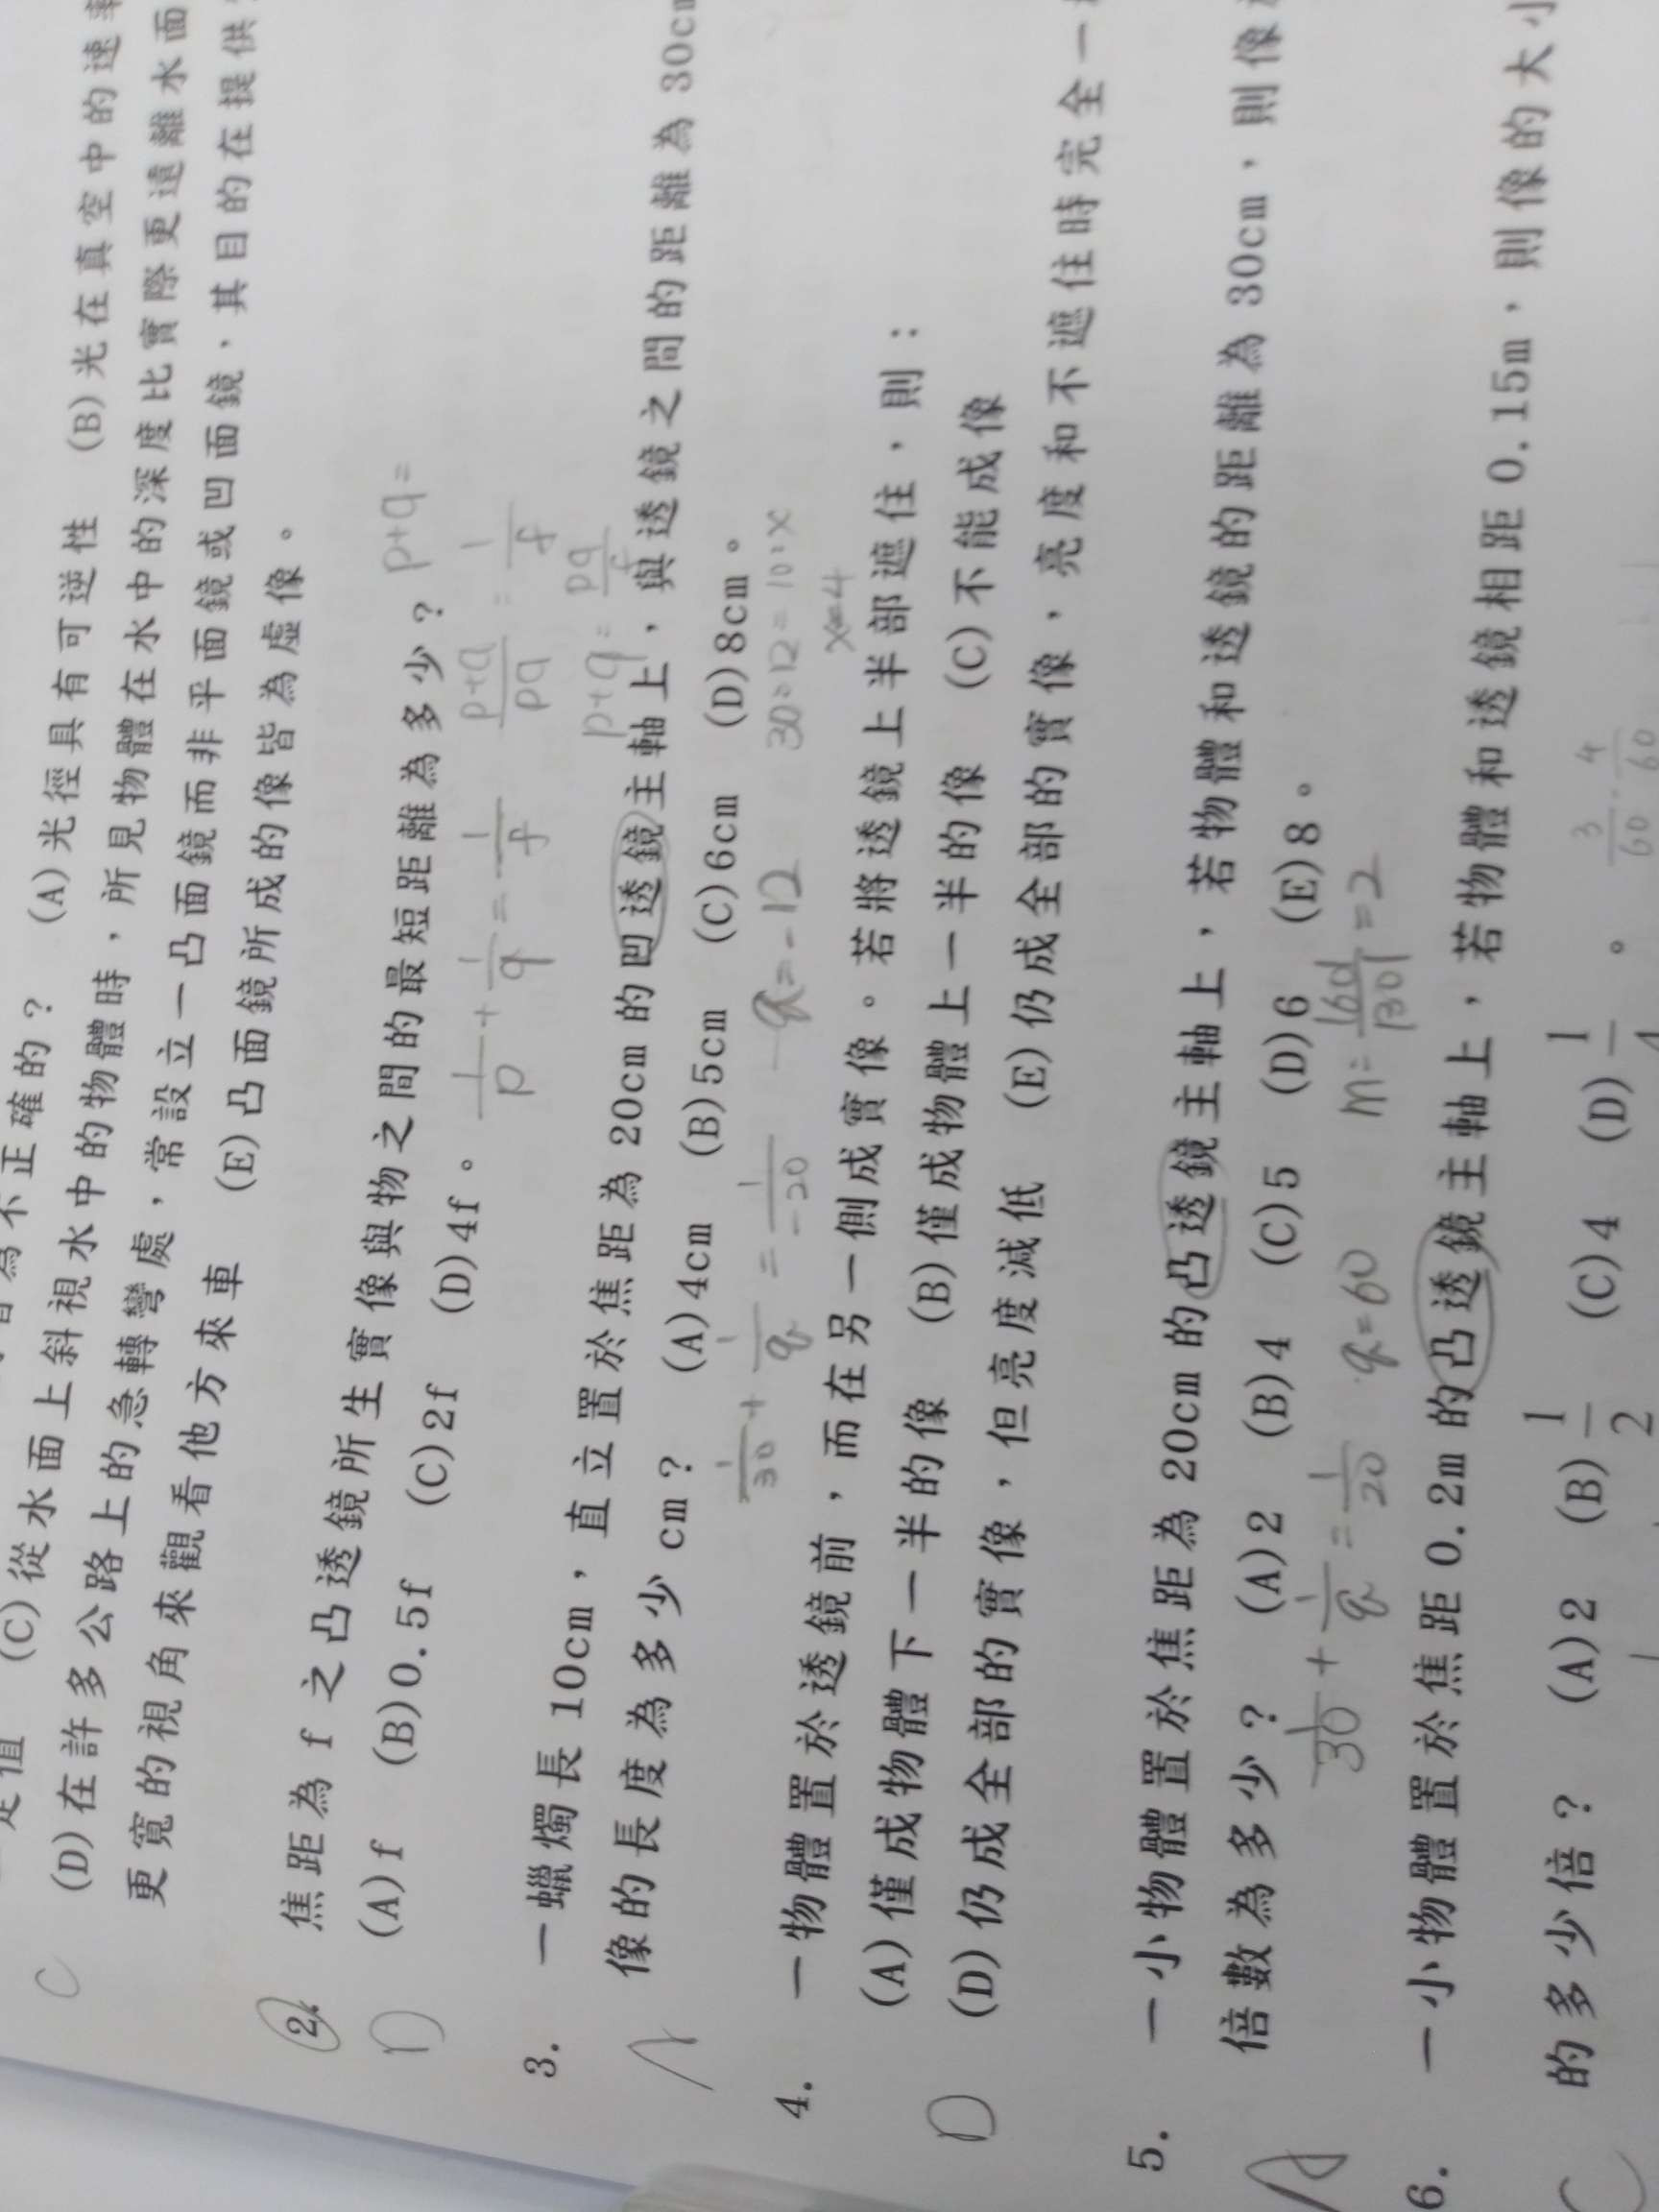 是值 (C)從水面上斜視水中的物體時，所見物體在水中的深度比實際更遠離水面
為不正確的？ (A)光徑具有可逆性 (B)光在真空中的速率
(D)在許多公路上的急轉彎處，常設立一凸面鏡而非平面鏡或凹面鏡，其目的在提供
更寬的視角來觀看他方來車 (E)凸面鏡所成的像皆為虛像。
C
2. 焦距為 f 之凸透鏡所生實像與物之間的最短距離為多少？ p+q=
D (A)f (B)0.5f (C)2f (D)4f。 1/p + 1/q = 1/f (p+q)/pq = 1/f
p+q = pq/f
3. 一蠟燭長 10cm，直立置於焦距為 20cm 的凹透鏡主軸上，與透鏡之間的距離為 30cm
A 像的長度為多少 cm？ (A)4cm (B)5cm (C)6cm (D)8cm。
1/30 + 1/q = 1/-20 q=-12 30:12=10:x
x=4
4. 一物體置於透鏡前，而在另一側成實像。若將透鏡上半部遮住，則：
(A)僅成物體下一半的像 (B)僅成物體上一半的像 (C)不能成像
D (D)仍成全部的實像，但亮度減低 (E)仍成全部的實像，亮度和不遮住時完全一
5. 一小物體置於焦距為 20cm 的凸透鏡主軸上，若物體和透鏡的距離為 30cm，則像
A 倍數為多少？ (A)2 (B)4 (C)5 (D)6 (E)8。
1/30 + 1/q = 1/20 q=60 m=|60|/|30|=2
6. 一小物體置於焦距 0.2m 的凸透鏡主軸上，若物體和透鏡相距 0.15m，則像的大小
C 的多少倍？ (A)2 (B)1/2 (C)4 (D)1/4。
3/60 - 4/60